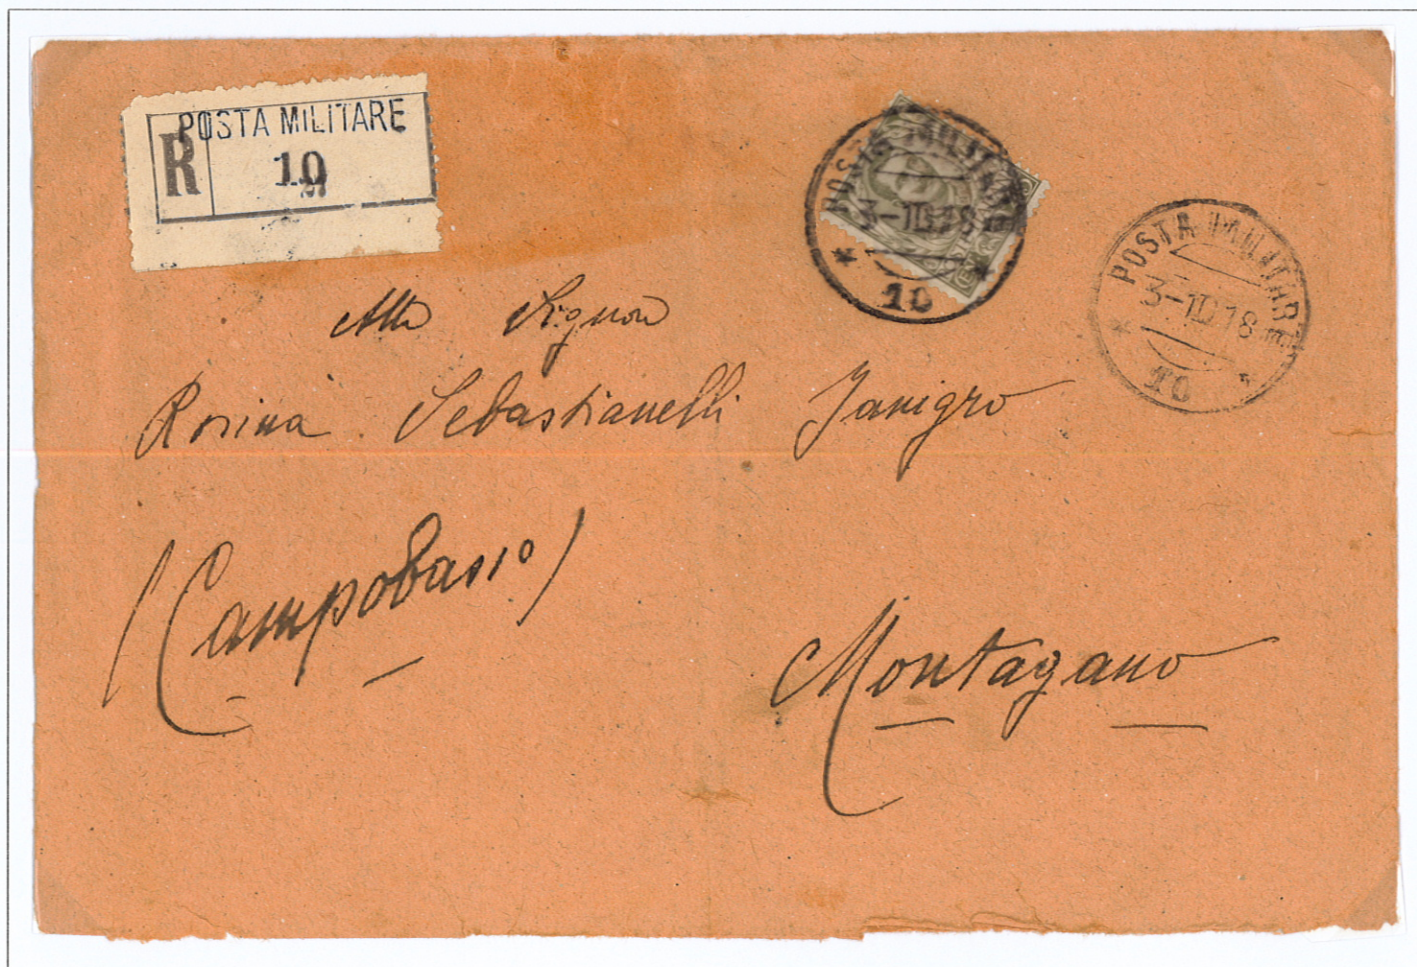 POSTA MILITARE
R
10
POSTA MILITARE
3-10 18
10
POSTA MILITARE
3-10 18
10
Alla Signora
Rosina Sebastianelli Janigro
(Campobasso)
Montagano